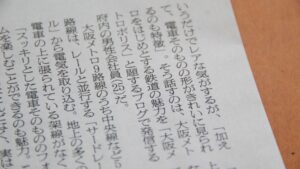 いうだけでレアな気がするが、「加え
て、電車そのものの形がきれいに見られ
るのも特徴」。そう話すのは、大阪メト
ロをはじめとする鉄道の魅力を「大阪メ
トロポリス」と題するブログで発信する
府内の男性会社員（25）だ。
大阪メトロ9路線のうち中央線など5
路線は、レールと並行する「サードレー
ル」から電気を取り込む。地上の多くの
電車の上に張られている架線がなく、
「スッキリとした電車そのもののフォル
ムを楽しむことができるのも魅力」